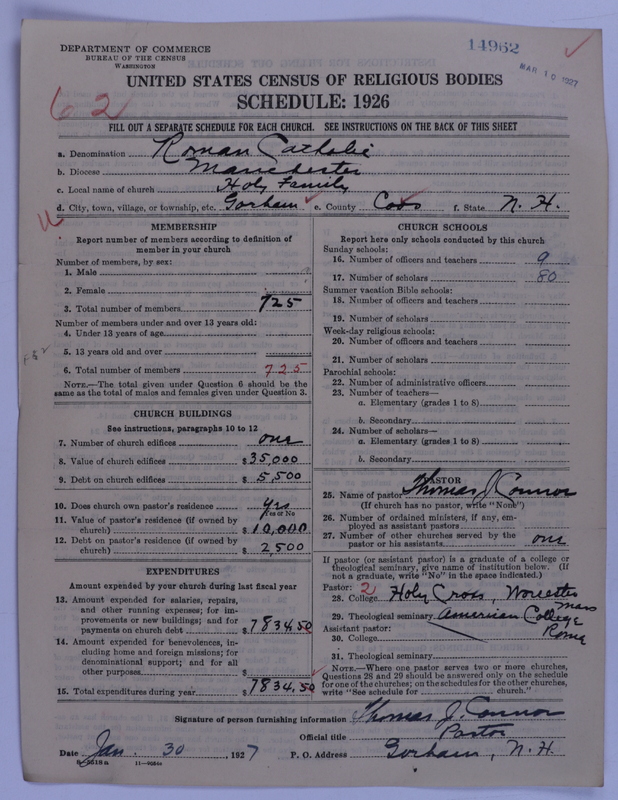 DEPARTMENT OF COMMERCE
BUREAU OF THE CENSUS
WASHINGTON
14962
MAR 10 1927
UNITED STATES CENSUS OF RELIGIOUS BODIES
SCHEDULE: 1926
62
FILL OUT A SEPARATE SCHEDULE FOR EACH CHURCH. SEE INSTRUCTIONS ON THE BACK OF THIS SHEET
a. Denomination Roman Catholic
b. Diocese Manchester
c. Local name of church Holy Family
d. City, town, village, or township, etc. Gorham e. County Coos f. State N. H.
MEMBERSHIP
Report number of members according to definition of
member in your church
Number of members, by sex:
1. Male
2. Female
3. Total number of members 725
Number of members under and over 13 years old:
4. Under 13 years of age
5. 13 years old and over
6. Total number of members 725
NOTE.—The total given under Question 6 should be the
same as the total of males and females given under Question 3.
CHURCH BUILDINGS
See instructions, paragraphs 10 to 12
7. Number of church edifices one
8. Value of church edifices $35,000
9. Debt on church edifices $5,500
10. Does church own pastor's residence yes
Yes or No
11. Value of pastor's residence (if owned by
church) $10,000
12. Debt on pastor's residence (if owned by
church) $2500
EXPENDITURES
Amount expended by your church during last fiscal year
13. Amount expended for salaries, repairs,
and other running expenses; for im-
provements or new buildings; and for
payments on church debt $7834.50
14. Amount expended for benevolences, in-
cluding home and foreign missions; for
denominational support; and for all
other purposes $
15. Total expenditures during year $7834.50
CHURCH SCHOOLS
Report here only schools conducted by this church
Sunday schools:
16. Number of officers and teachers 9
17. Number of scholars 80
Summer vacation Bible schools:
18. Number of officers and teachers
19. Number of scholars
Week-day religious schools:
20. Number of officers and teachers
21. Number of scholars
Parochial schools:
22. Number of administrative officers
23. Number of teachers—
a. Elementary (grades 1 to 8)
b. Secondary
24. Number of scholars—
a. Elementary (grades 1 to 8)
b. Secondary
PASTOR
25. Name of pastor Thomas J. Connor
(If church has no pastor, write "None")
26. Number of ordained ministers, if any, em-
ployed as assistant pastors
27. Number of other churches served by the
pastor or his assistants one
If pastor (or assistant pastor) is a graduate of a college or
theological seminary, give name of institution below. (If
not a graduate, write "No" in the space indicated.)
Pastor: 2
28. College Holy Cross, Worcester
Mass
29. Theological seminary American College
Rome
Assistant pastor:
30. College
31. Theological seminary
NOTE.—Where one pastor serves two or more churches,
Questions 28 and 29 should be answered only on the schedule
for one of the churches; on the schedules for the other churches,
write "See schedule for church."
Signature of person furnishing information Thomas J. Connor
Official title Pastor
Date Jan. 30, 1927 P. O. Address Gorham, N. H.